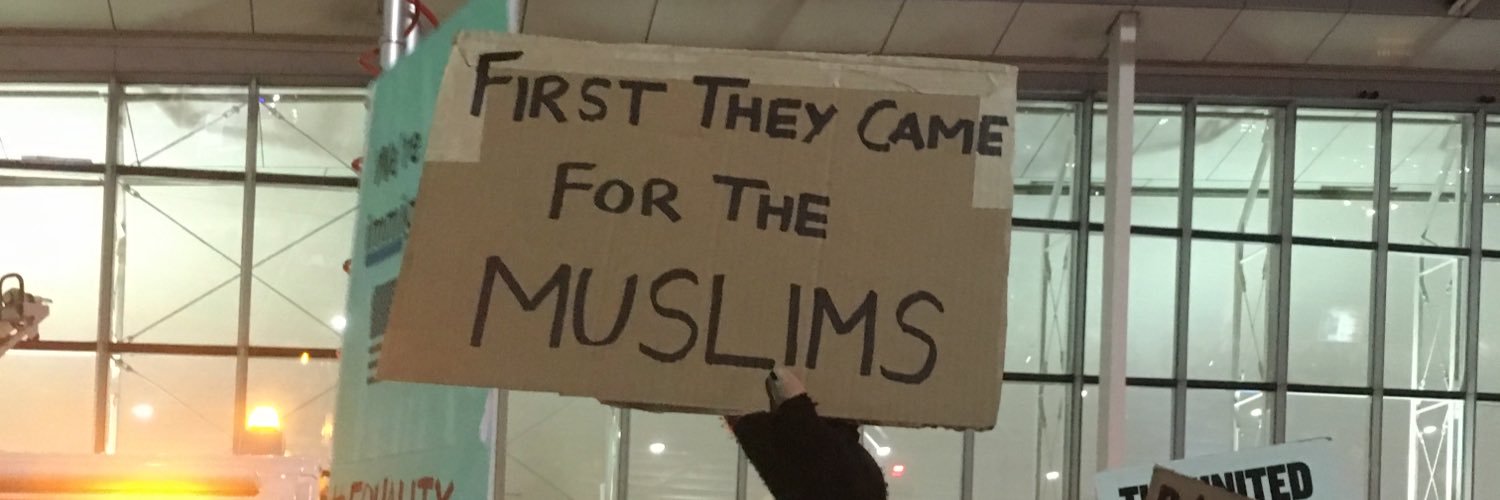 FIRST THEY CAME
FOR THE
MUSLIMS
EQUALITY
UNITED